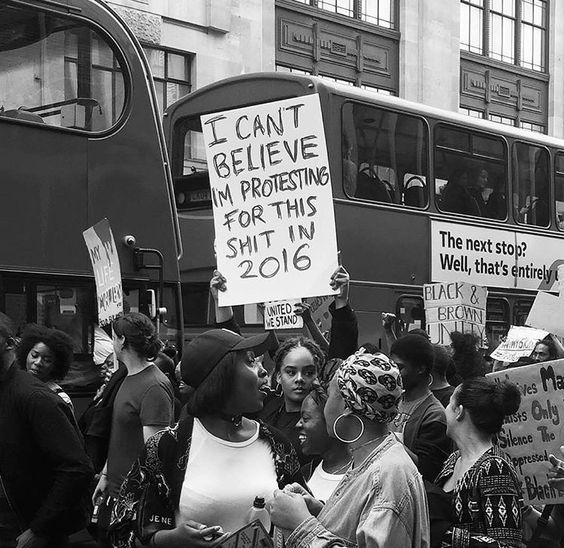 I CAN'T
BELIEVE
I'M PROTESTING
FOR THIS
SHIT IN
2016
The next stop?
Well, that's entirely
MY
LIFE
UNITED
WE STAND
BLACK &
BROWN
UNITY
Only
Silence The
Oppressed
Black
JENE